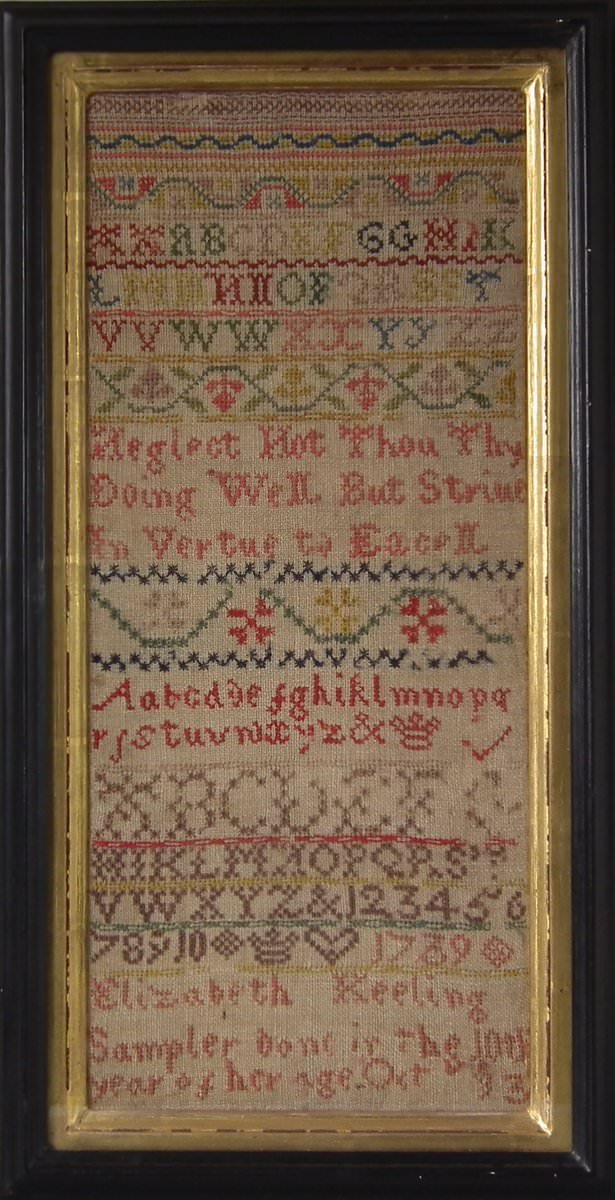 A A A B C D E F G G H I K
L M M N N O P Q R S S T
V V W W X X Y Y Z Z
Neglect Not Thou Thy
Doing Well But Strive
In Vertue to Excell
A a b c d d e f g h i k l m n o p q
r ſ s t u v w x y z &
A B C D E F G
H I K L M N O P Q R S
V W X Y Z & 1 2 3 4 5 6
7 8 9 10 1739
Elizabeth Keeling
Sampler done in The
year of her age Oct